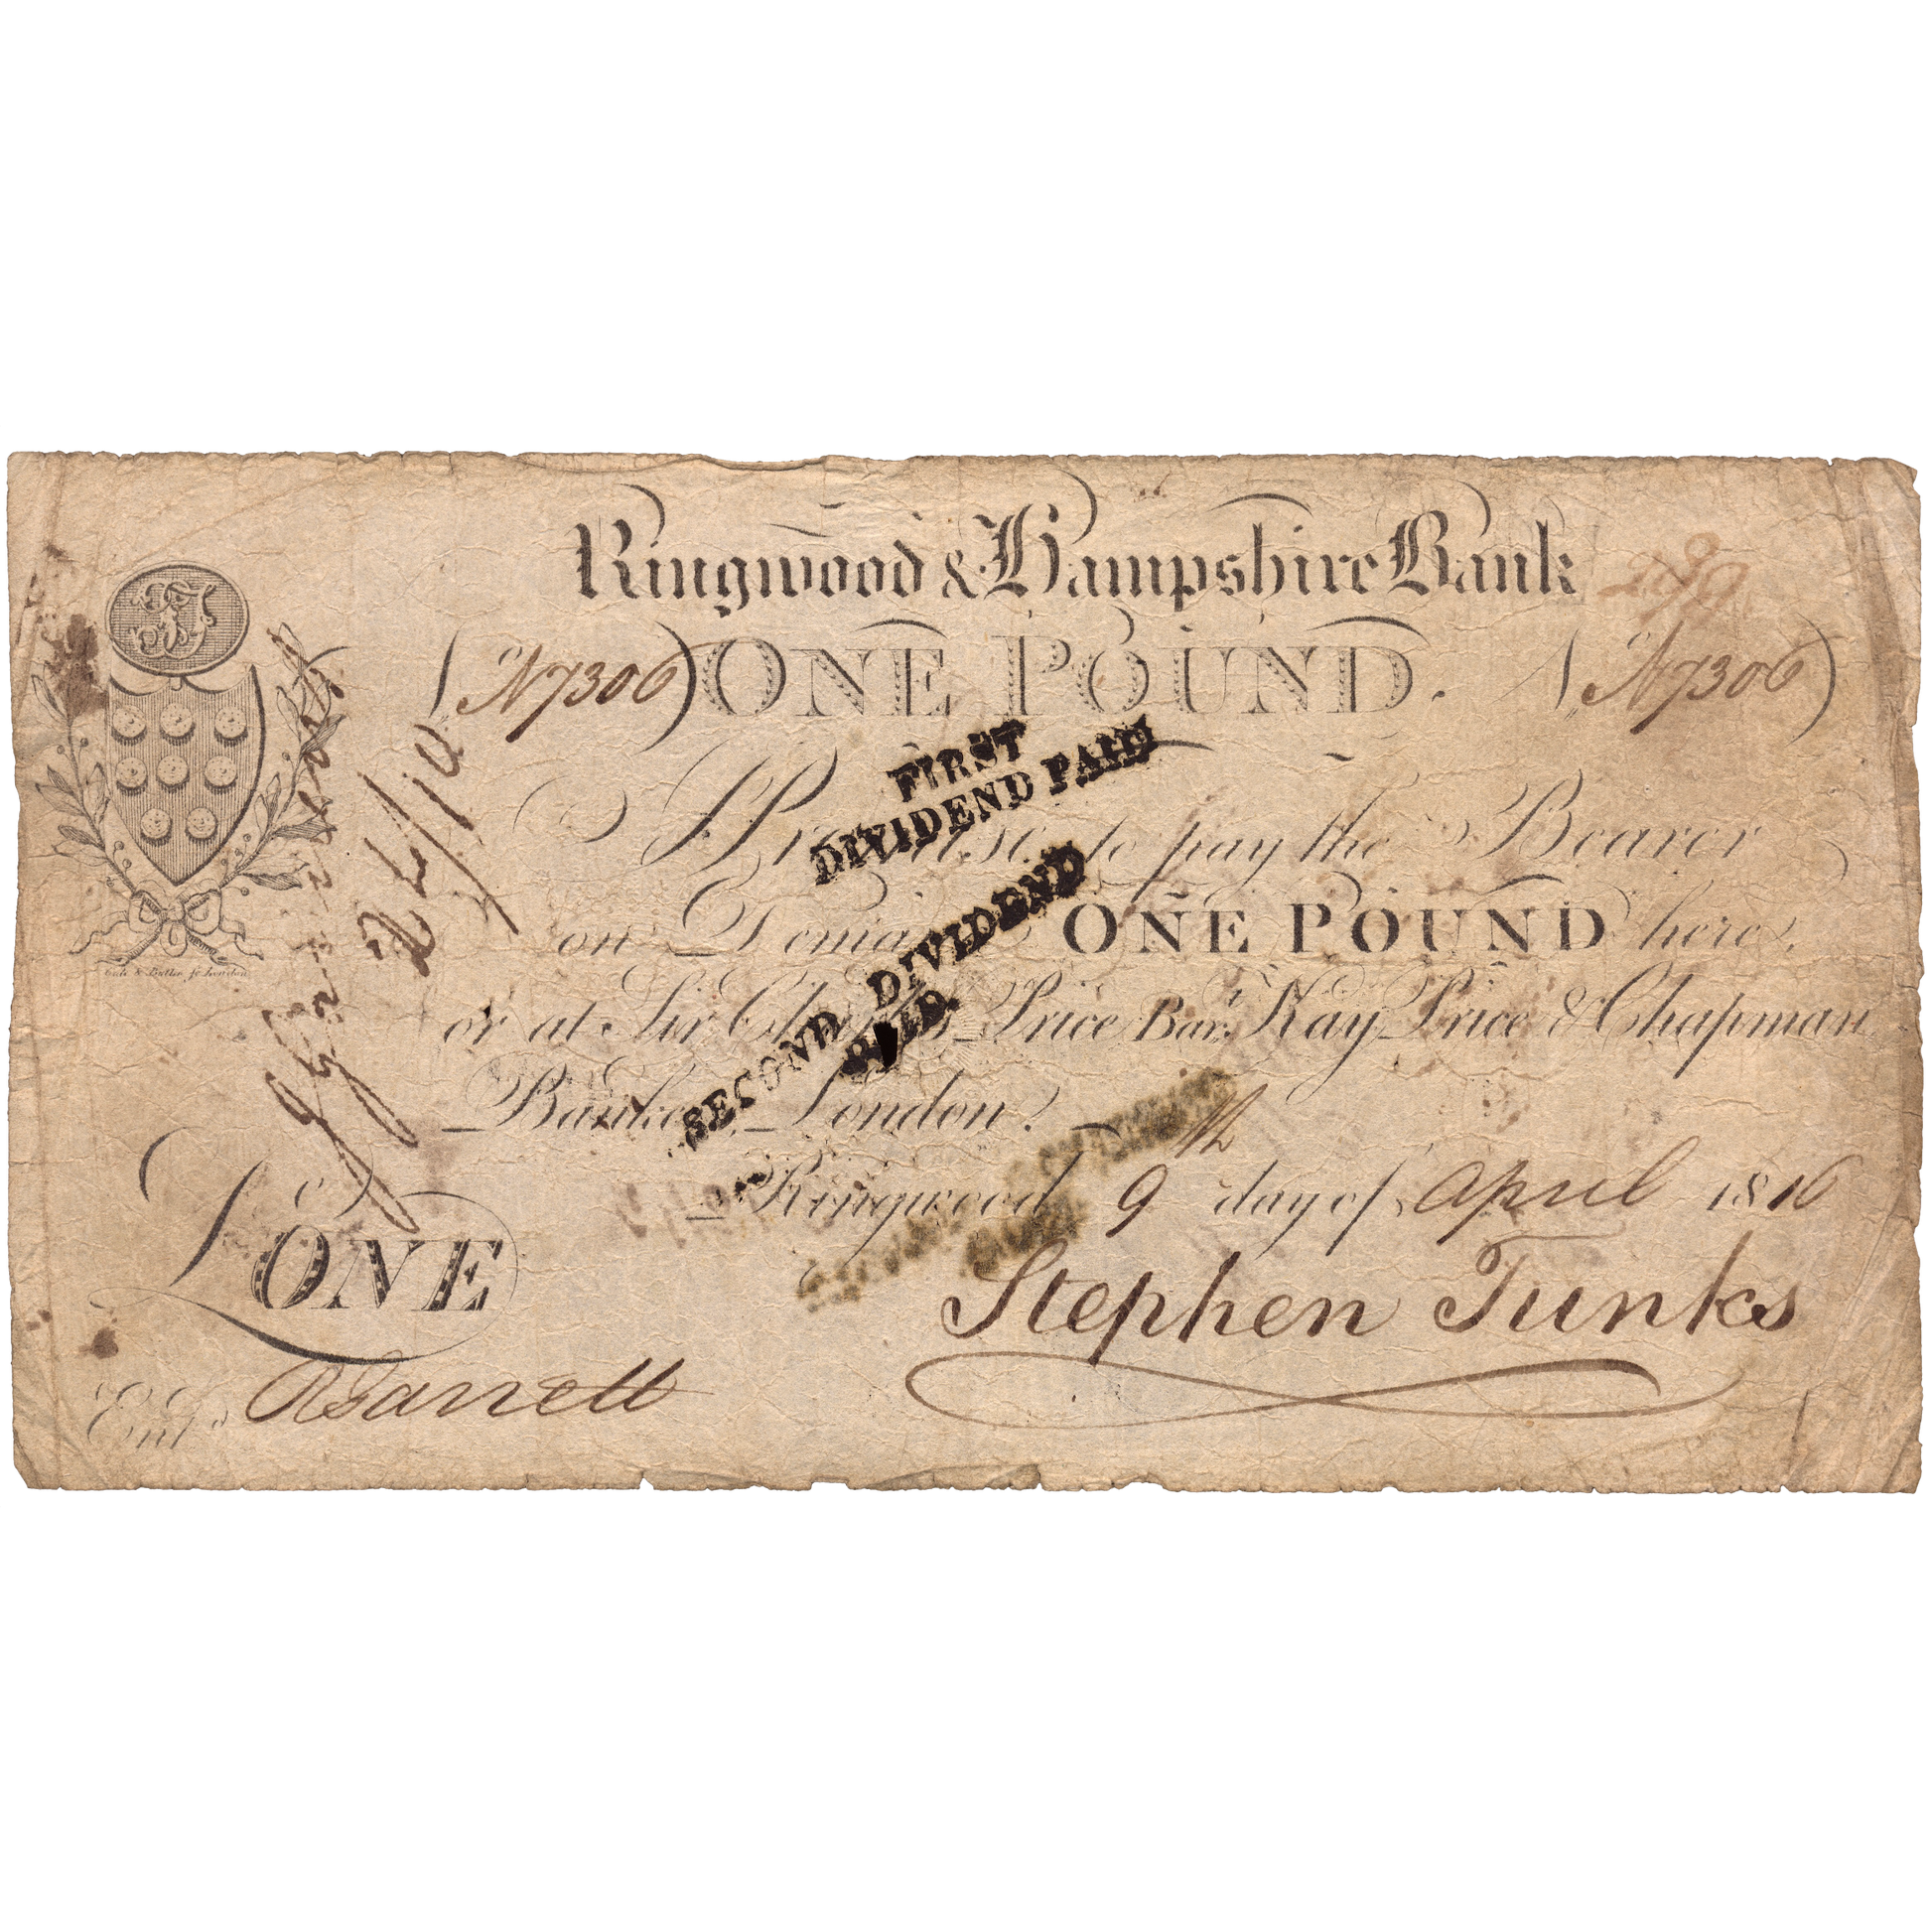 Ringwood & Hampshire Bank
(No. 7306) ONE POUND. (No. 7306)
FIRST
DIVIDEND PAID
I Promise to pay the Bearer
on Demand ONE POUND here,
or at Sir Charles Price Bart. Kay Price & Chapman
Bankers London.
SECOND DIVIDEND
PAID.
Ringwood 9th day of April 1816
£ONE
Stephen Tunks
Entd.